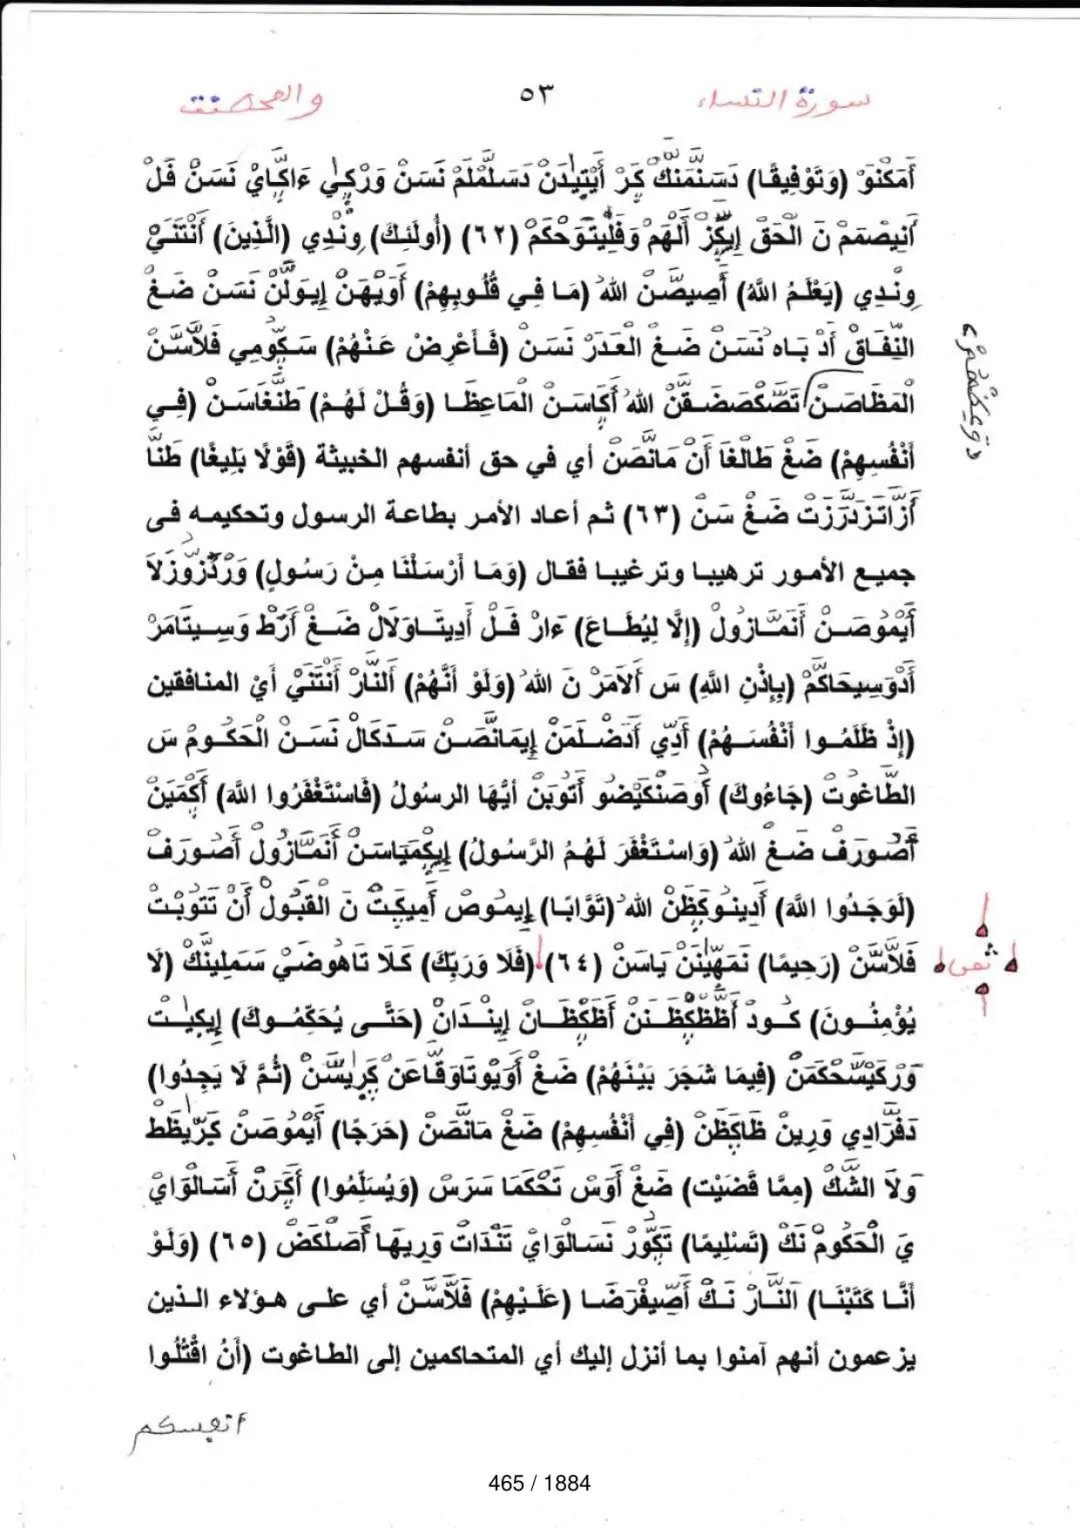 سورة النساء ٥٣ والمحصنت
أَمَكْنَوَ (وَتَوْفِيقًا) دَسَنَّمَنَكْ كَرْ أَيْتِيلَدَنْ دَسَلْمَلَمْ نَسَنْ وَرْكِلِي ءَاكَّايْ نَسَنْ فَلْ
أَنِيصَمَمْ نَ الْحَقْ إِيكَزْ أَلَهَمْ وَفَلِيتَوَحْكَمْ (٦٢) (أُولَئِكَ) وِنْدِي (الَّذِينَ) أَنْتَنَيْ
وِنْدِي (يَعْلَمُ اللَّهُ) أَصِيصَّنْ اللهُ (مَا فِي قُلُوبِهِمْ) أَوَيْهَنْ إِيوَلَّنْ نَسَنْ ضَغْ
النِّفَاقْ أَدْ بَاه نَسَنْ ضَغْ الْعَدَرْ نَسَنْ (فَأَعْرِضْ عَنْهُمْ) سَكُّومِي فَلَّاسَنْ
الْمَظَاصَنْ تَصَّكَصَضَقَنْ اللهُ أَكَاسَنْ الْمَاعِظَا (وَقُلْ لَهُمْ) طَنَّغَاسَنْ (فِي
أَنْفُسِهِمْ) ضَغْ طَالْغَا أَنْ مَانَّصَنْ أي في حق أنفسهم الخبيثة (قَوْلًا بَلِيغًا) طَنَّا
أَزَّاتَزَدَرَّزَتْ ضَغْ سَنْ (٦٣) ثم أعاد الأمر بطاعة الرسول وتحكيمه فى
جميع الأمور ترهيبا وترغيبا فقال (وَمَا أَرْسَلْنَا مِنْ رَسُولٍ) وَرْدَزَّوَزَلَا
أَيْمُوصَنْ أَنَمَّازُولْ (إِلَّا لِيُطَاعَ) ءَارْ فَلْ أَدِيتَاوَلَالْ ضَغْ أَرَطْ وَسِيتَامَرْ
أَدْوَسِيحَاكَمْ (بِإِذْنِ اللَّهِ) سَ أَلَامَرْ نَ اللهُ (وَلَوْ أَنَّهُمْ) أَلنَّارْ أَنْتَنَيْ أَيْ المنافقين
(إِذْ ظَلَمُوا أَنْفُسَهُمْ) أَدِّي أَدَضْلَمَنْ إِيمَانَّصَنْ سَدَكَالْ نَسَنْ الْحَكُومْ سَ
الطَّاغُوتْ (جَاءُوكَ) أُوصَنْكَيْضُو أَتُوبَنْ أيُّهَا الرسولُ (فَاسْتَغْفَرُوا اللَّهَ) أَكْمَيَنْ
أَصُورَفْ ضَغْ اللهُ (وَاسْتَغْفَرَ لَهُمُ الرَّسُولُ) إِيكْمَيَاسَنْ أَنَمَّازُولْ أَصُورَفْ
(لَوَجَدُوا اللَّهَ) أَدِينُوكَظَنْ اللهُ (تَوَّابًا) إِيمُوصْ أَمِيكَتْ نَ الْقَبُولْ أَنْ تَتُوبْتْ
فَلَّاسَنْ (رَحِيمًا) نَمَهَيْنَنْ يَاسَنْ (٦٤) (فَلَا وَرَبِّكَ) كَلَا تَاهُوضَيْ سَمَلِينَكْ (لَا
ثمن
يُؤْمِنُونَ) كُودْ أَظَّظَكَظَنَنْ أَظَكَظَانْ إِينْدَانْ (حَتَّى يُحَكِّمُوكَ) إِيكِيتْ
وَرْكَيْسَحْكَمَنْ (فِيمَا شَجَرَ بَيْنَهُمْ) ضَغْ أَوَيُوتَاوَقَّاعَنْ كَرِيسَنْ (ثُمَّ لَا يَجِدُوا)
دَفَرَّادِي وَرِينْ ظَاكَظَنْ (فِي أَنْفُسِهِمْ) ضَغْ مَانَّصَنْ (حَرَجًا) أَيْمُوصَنْ كَرَيْظَطْ
وَلَا الشَّكْ (مِمَّا قَضَيْتَ) ضَغْ أَوَسْ تَحْكَمَا سَرَسْ (وَيُسَلِّمُوا) أَكَرَنْ أَسَالْوَايْ
يَ الْحَكُومْ نَكْ (تَسْلِيمًا) تَكَوْرْ نَسَالْوَايْ تَنْدَاتْ وَرِيهَا أَصَلْكَضْ (٦٥) (وَلَوْ
أَنَّا كَتَبْنَا) أَلنَّارْ نَكْ أَصِيفْرَضَا (عَلَيْهِمْ) فَلَّاسَنْ أي على هؤلاء الذين
يزعمون أنهم آمنوا بما أنزل إليك أي المتحاكمين إلى الطاغوت (أَنِ اقْتُلُوا
أنفسكم
465 / 1884